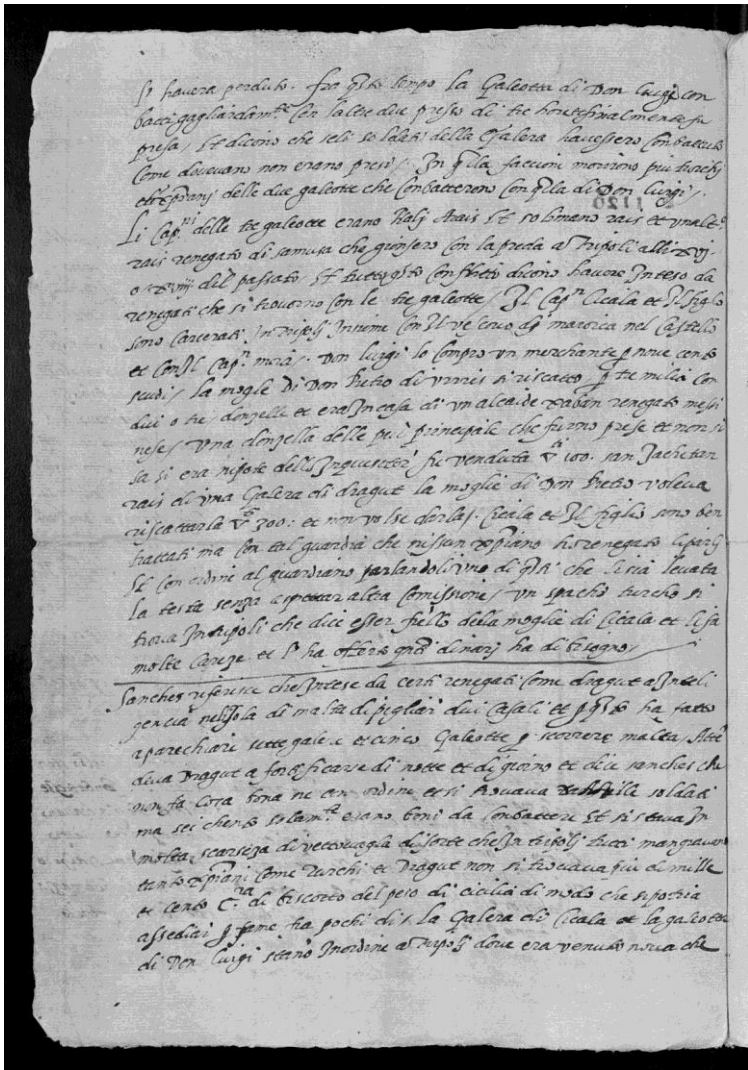 si havera perduto. fra q̃sto tempo la Galeotta di Don luigi con
bacti gagliardam.te con laltre due presso di tre hore finalmente fu
presa / Et dicono che se li soldati della Galera havessero conbattuto
come dovevano non erano presi / In q̃lla faccioni morirono piu turchi
et xp̃iani delle due galeotte che conbatterono con q̃lla di Don luigi /
1120
Li Cap.ni delle tre galeotte erano Kalj Arais Et solimano rais et un alt.o
rais renegato di samusa che giunsero con la preda a tripoli alli xvj
o xviij del passato. Et tutto q̃sto constreto dicono havere Inteso da
renegati che si trovorno con le tre galeotte / Il Cap.n Cicala et Il figlio
sono carcerati In tripoli Insieme con Il vescovo di maiorica nel Castello
et con Il Cap.n / Don luigi lo compro un merchante p nove cento
scudi / la mogle di Don Pietro di si riscatto p tre milia con
dui o tre donzelle et era In casa di un alcaide xaban renegato messi
nese / Una donzella delle piu principale che furno prese et non si
sa si era nipote dell Inquisitori fu venduta 100. san Jachitan
rais di una Galera di dragut la moglie di Don Pietro voleva
riscattarla 300: et non volse darla / Cicala et Il figlio sono ben
trattati ma con tal guardia che nissun xp̃iano ho renegato li parli
Et con ordine al guardiano parlandoli uno di q̃sti che li sia levata
la testa senza aspettar altra Comissione / un spacho turcho si
trova In tripoli che dice esser f̃rello della moglia di Cicala et li fa
molte careze et l'ha offerto q̃nti dinarj ha di bisogno /
Sanches riferisce che Intese da certi renegati come dragut a Inteli
gencia nel Isola di malta di pigliari dui Casali et p q̃sto ha fatto
aparechiari sette galere et cinco Galeotte p scorrere malta. Atte
diva Dragut a fortificarse di notte et di giorno et dice sanches che
non fa cosa bona ne con ordine et si trovava milli soldati
ma sei chento solam.te erano boni da conbatteri Et si stava In
molta scarseza di vettovaglia di sorte che In tripoli tutti mangiavano
tanto xp̃iani come turchi et Dragut non si trovava piu di mille
et cento C.ra di biscotto del peso di cicilia di modo che si potria
assediari p fame fra pochi di. La Galera di Cicala et la galeotta
di Don luigi stano In ordine a tripoli dove era venuto nova che